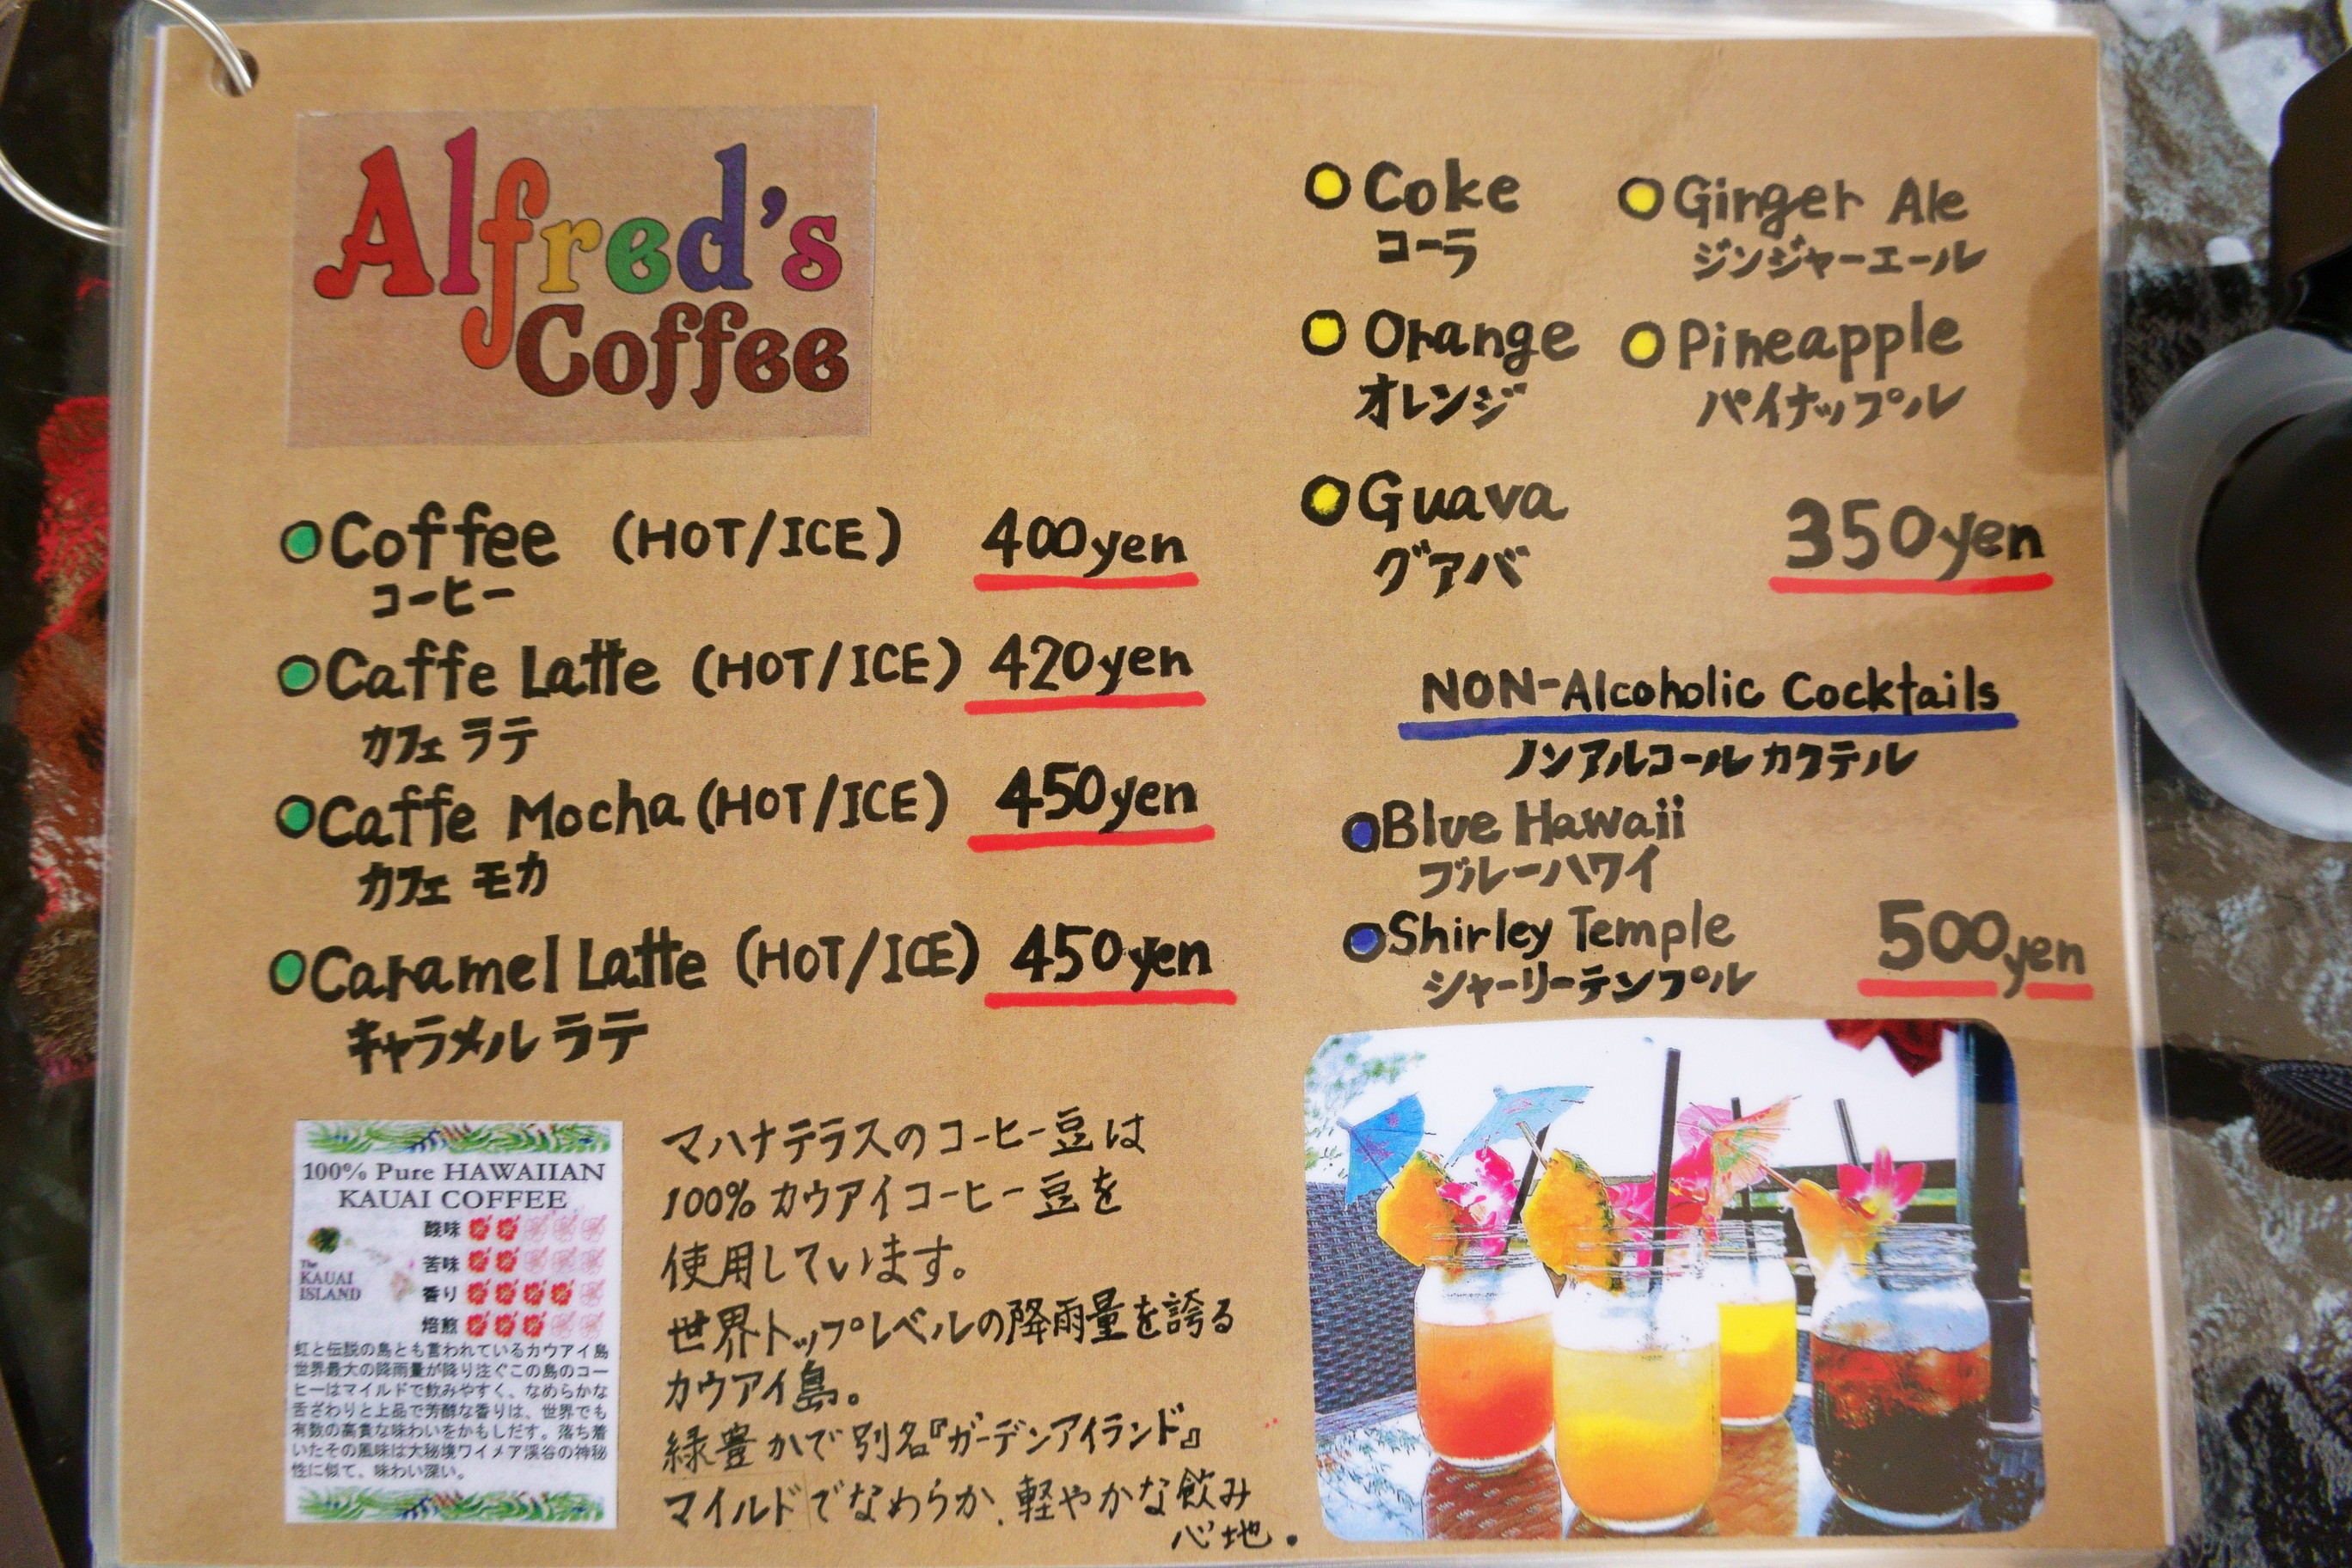 Alfred's
Coffee
Coffee (HOT/ICE) 400yen
コーヒー
Caffe Latte (HOT/ICE) 420yen
カフェ ラテ
Caffe Mocha (HOT/ICE) 450yen
カフェ モカ
Caramel Latte (HOT/ICE) 450yen
キャラメル ラテ
100% Pure HAWAIIAN
KAUAI COFFEE
酸味
苦味
香り
焙煎
The
KAUAI
ISLAND
虹と伝説の島とも言われているカウアイ島
世界最大の降雨量が降り注ぐこの島のコー
ヒーはマイルドで飲みやすく、なめらかな
舌ざわりと上品で芳醇な香りは、世界でも
有数の高貴な味わいをかもしだす。落ち着
いたその風味は大秘境ワイメア渓谷の神秘
性に似て、味わい深い。
マハナテラスのコーヒー豆は
100% カウアイコーヒー豆を
使用しています。
世界トップレベルの降雨量を誇る
カウアイ島。
緑豊かで別名『ガーデンアイランド』
マイルドでなめらか、軽やかな飲み
心地。
Coke
コーラ
Ginger Ale
ジンジャーエール
Orange
オレンジ
Pineapple
パイナップル
Guava
グアバ
350yen
NON-Alcoholic Cocktails
ノンアルコールカクテル
Blue Hawaii
ブルーハワイ
Shirley Temple
シャーリーテンプル
500yen